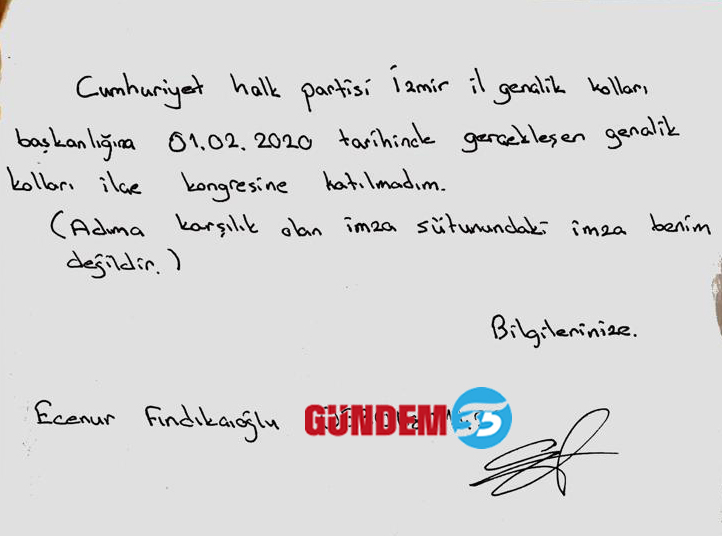 Cumhuriyet halk partisi İzmir il gençlik kolları
başkanlığına 01.02.2020 tarihinde gerçekleşen gençlik
kolları ilçe kongresine katılmadım.
(Adıma karşılık olan imza sütunundaki imza benim
değildir.)
Bilgilerinize.
Ecenur Fındıkcıoğlu
GÜNDEM35